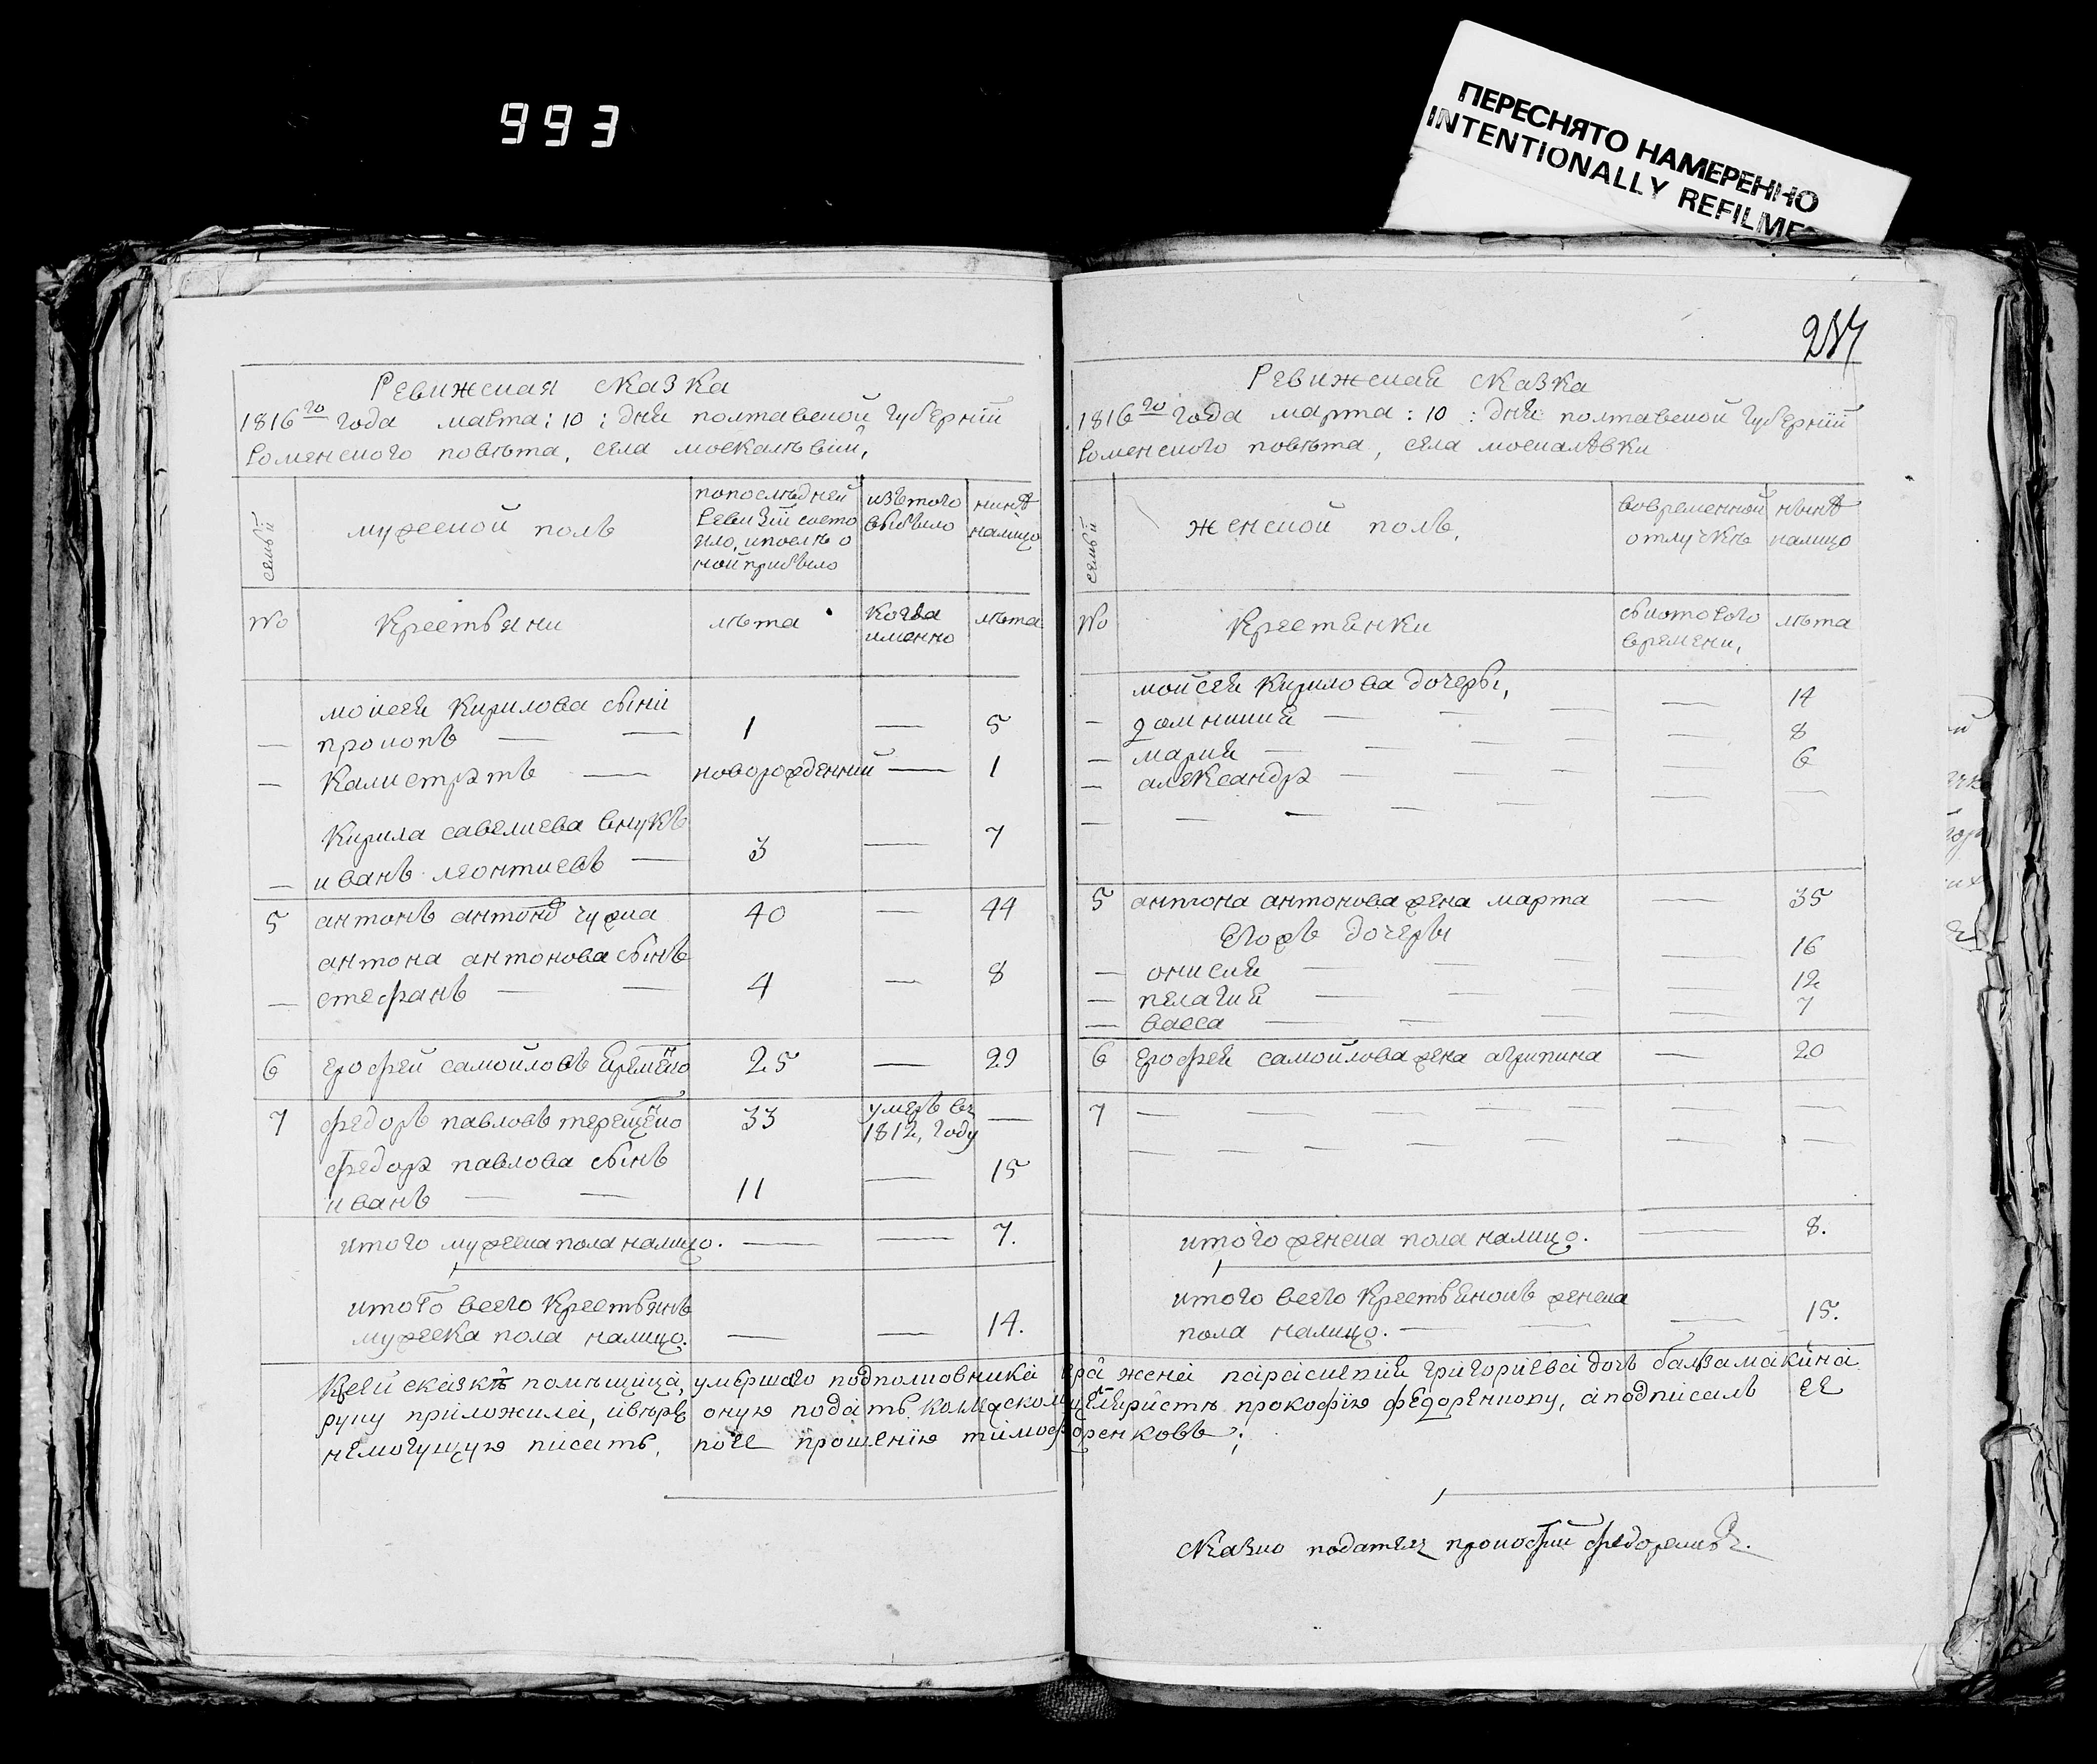 993
ПЕРЕСНЯТО НАМЕРЕННО
INTENTIONALLY REFILME
Ревижская сказка
1816го года марта: 10: дня полтавской губернїи
Роменского повѣта, села москалѣвки,
семьи
мужеской полъ
попоследней Ревизїи состояло, ипослѣ оной прибыло
изътого выбыло
нинѣ налицо
№
Крестьяни
лѣта
когда именно
лѣта
мойсея Кирилова сыни
— прокопъ — — 1 — 5
— Калистратъ — новорожденний — 1
Кирила савелиева внукъ
— иванъ леонтиевъ — 3 — 7
5 антонъ антонов чужка 40 — 44
антона антонова сынъ
— стефанъ — — 4 — 8
6 ерофей самойловъ 25 — 29
7 федоръ павловъ терещенко 33 умеръ въ 1812, году —
федора павлова сынъ
иванъ — — 11 — 15
итого мужеска пола налицо. — — 7.
итого всего Крестьянъ
мужеска пола налицо. — — 14.
237
Ревижская сказка
1816го года марта: 10: дня полтавской губернїи
Роменского повѣта, села москалѣвки
семьи
женской полъ,
вовременной отлучкѣ
нынѣ налицо
№
Крестянки
съкоторого времени,
лѣта
мойсея Кирилова дочеры,
— домникия — — — — 14
— мария — — — — 8
— александра — — — — 6
— — — — — — —
5 антона антонова жена марта — 35
Егожъ дочеры
— онисия — — — — 16
— пелагия — — — — 12
— васса — — — — 7
6 ерофея самойлова жена агрипина — 20
7 — — — — — —
— — — — — —
итого женска пола налицо. — 8.
итого всего Крестьянокъ женска
пола налицо. — — — 15.
Ксей сказкѣ помѣщица, умершаго подполковника жена параскепия григориева дочь балзамакина
руку приложила, оную подать прокофїю федоренкову, аподписалъ ее
немогущую писать, поее прошенїю
Сказко податель прокофий